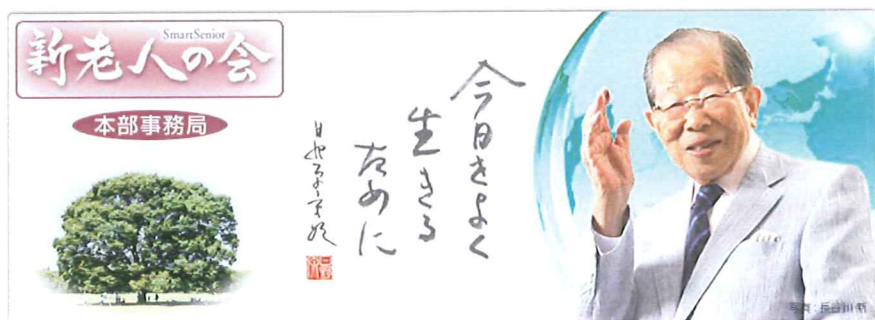 SmartSenior
新老人の会
本部事務局
今日をよく
生きる
ために
日野原重明
写真：長谷川 新